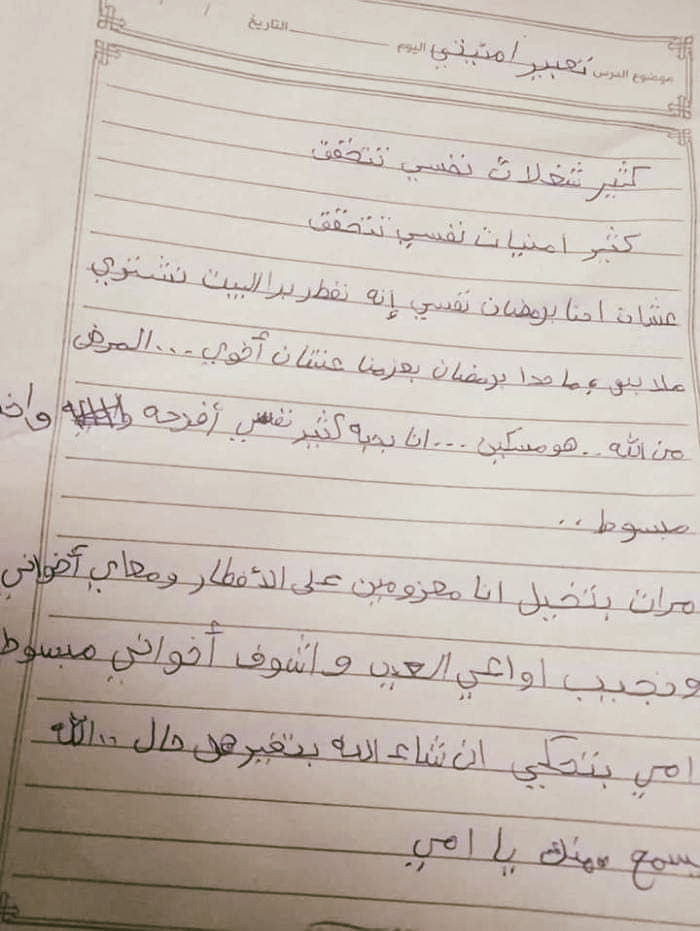 موضوع الدرس تعبير امنيتي اليوم التاريخ
كثير شغلات نفسي تتحقق
كثير امنيات نفسي تتحقق
عشان احنا برمضان نفسي إنه نفطر برا البيت نشتري
ملابس وما حدا برمضان بعزمنا عشان أخوي ... المرض
من الله .. هو مسكين ... انا بحبه كثير نفسي أفرحه
مبسوط ..
مرات بتخيل انا معزومين على الأفطار ومعاي أخواني
ونجيب اواعي العيد واشوف أخواني مبسوط
امي بتحكي ان شاء الله بتغير هل حال .. الله
يسمع منك يا امي